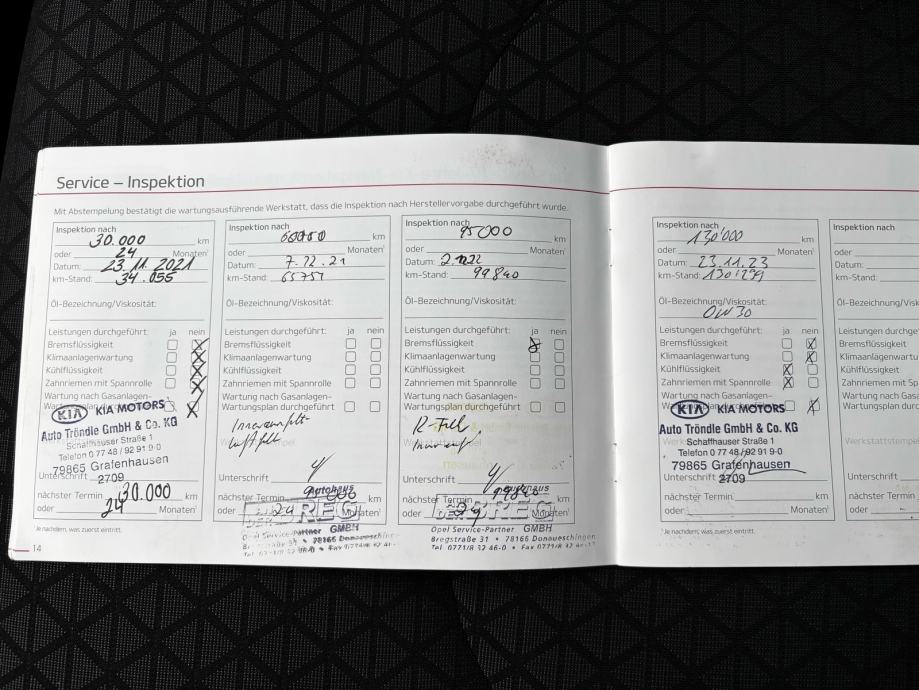 Service – Inspektion
Mit Abstempelung bestätigt die wartungsausführende Werkstatt, dass die Inspektion nach Herstellervorgabe durchgeführt wurde.
Inspektion nach
30.000 km
oder 24 Monaten¹
Datum: 23.11.2021
km-Stand: 34.055
Öl-Bezeichnung/Viskosität:
Leistungen durchgeführt: ja nein
Bremsflüssigkeit
Klimaanlagenwartung
Kühlflüssigkeit
Zahnriemen mit Spannrolle
Wartung nach Gasanlagen-
KIA KIA MOTORS
Auto Tröndle GmbH & Co. KG
Schaffhauser Straße 1
Telefon 0 77 48 / 92 91 9-0
79865 Grafenhausen
Unterschrift 2709
nächster Termin 30.000 km
oder 24 Monaten¹
¹Je nachdem, was zuerst eintritt.
14
Inspektion nach
60000 km
oder Monaten¹
Datum: 7.12.21
km-Stand: 65751
Öl-Bezeichnung/Viskosität:
Leistungen durchgeführt: ja nein
Bremsflüssigkeit
Klimaanlagenwartung
Kühlflüssigkeit
Zahnriemen mit Spannrolle
Wartung nach Gasanlagen-
Wartungsplan durchgeführt
Unterschrift
nächster Termin km
Autohaus
oder 24 Monaten¹
REG
Opel Service-Partner GMBH
78166 Donaueschingen
Inspektion nach
95000 km
oder Monaten¹
Datum:
km-Stand: 99840
Öl-Bezeichnung/Viskosität:
Leistungen durchgeführt: ja nein
Bremsflüssigkeit
Klimaanlagenwartung
Kühlflüssigkeit
Zahnriemen mit Spannrolle
Wartung nach Gasanlagen-
Wartungsplan durchgeführt
Unterschrift
nächster Termin km
oder Monaten¹
REG
Opel Service-Partner GMBH
Bregstraße 31 • 78166 Donaueschingen
Tel 0771/8 32 46-0 • Fax
Inspektion nach
130'000 km
oder Monaten¹
Datum: 23.11.23
km-Stand: 130'299
Öl-Bezeichnung/Viskosität:
0W30
Leistungen durchgeführt: ja nein
Bremsflüssigkeit
Klimaanlagenwartung
Kühlflüssigkeit
Zahnriemen mit Spannrolle
Wartung nach Gasanlagen-
KIA KIA MOTORS
Auto Tröndle GmbH & Co. KG
Schaffhauser Straße 1
Telefon 0 77 48 / 92 91 9-0
79865 Grafenhausen
Unterschrift 2709
nächster Termin km
oder Monaten¹
¹Je nachdem, was zuerst eintritt.
Inspektion nach
oder
Datum:
km-Stand:
Öl-Bezeichnung/
Leistungen durch
Bremsflüssigkeit
Klimaanlagenwart
Kühlflüssigkeit
Zahnriemen mit S
Wartung nach Gas
Wartungsplan du
Werkstattstempel
Unterschrift
nächster Termin
oder